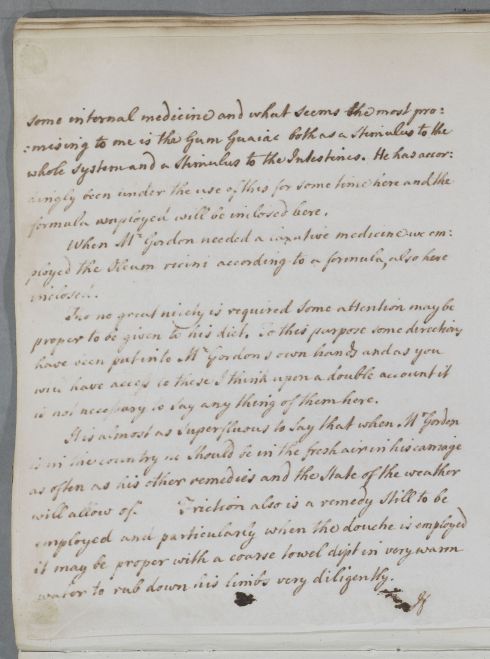 some internal medicine and what seems the most pro:
:mising to me is the Gum Guaiac both as a Stimulus to the
whole System and a Stimulus to the Intestines. He has accor:
dingly been under the use of this for some time here and the
formula employed will be inclosed here.
When Mr Gordon needed a laxative medicine we em:
ployed the Oleum ricini according to a formula, also here
inclosed.
Tho no great nicety is required some attention may be
proper to be given to his diet. To this purpose some directions
have been put into Mr Gordons own hands and as you
will have access to these I think upon a double account it
is not necessary to say any thing of them here.
It is almost as Superfluous to Say that when Mr Gordon
is in the country he Should be in the fresh air in his carriage
as often as his other remedies and the State of the weather
will allow of. Friction also is a remedy Still to be
employed and particularly when the douche is employed
it may be proper with a coarse towel dipt in very warm
water to rub down his limbs very diligently.